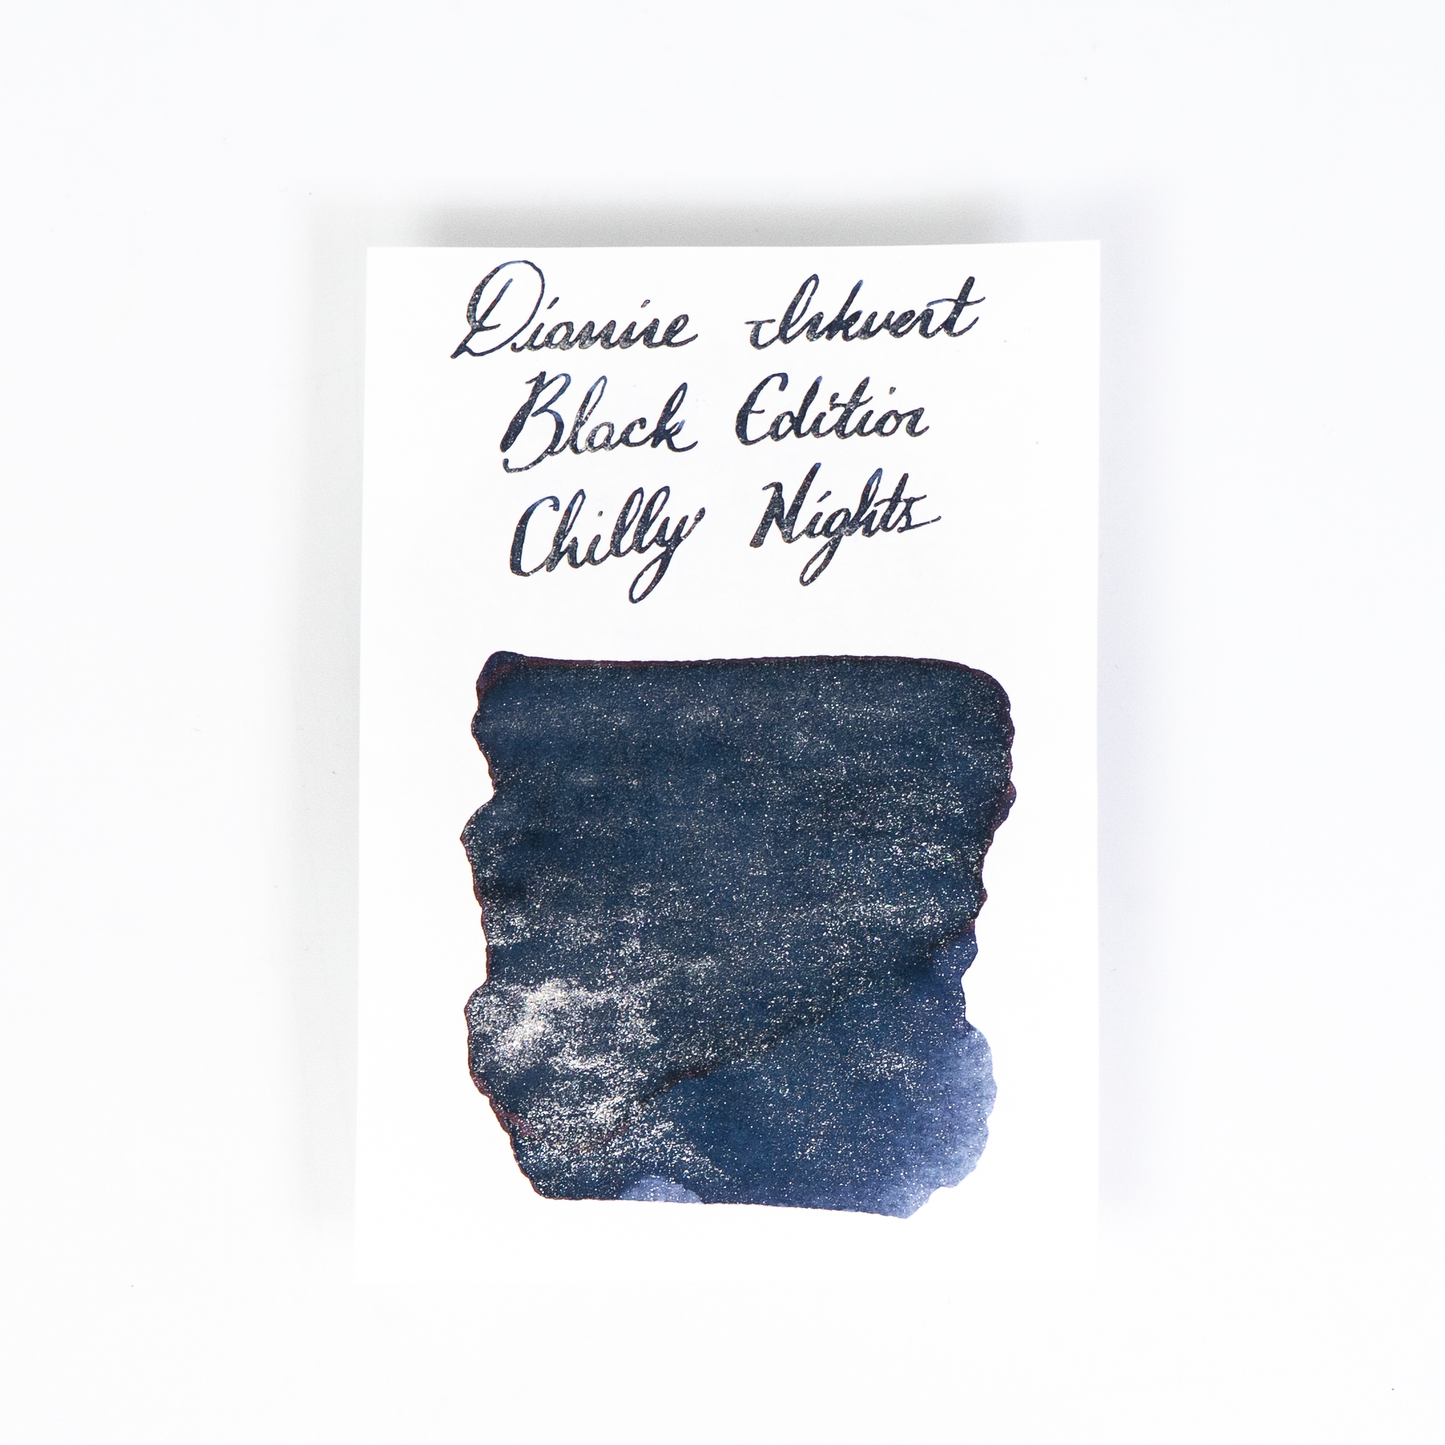 Diamine Inkvent
Black Edition
Chilly Nights